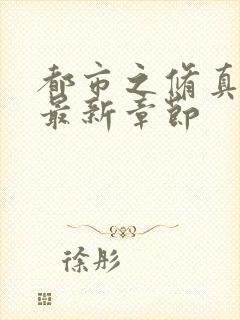 都市之脩真
最新章節
徐彤